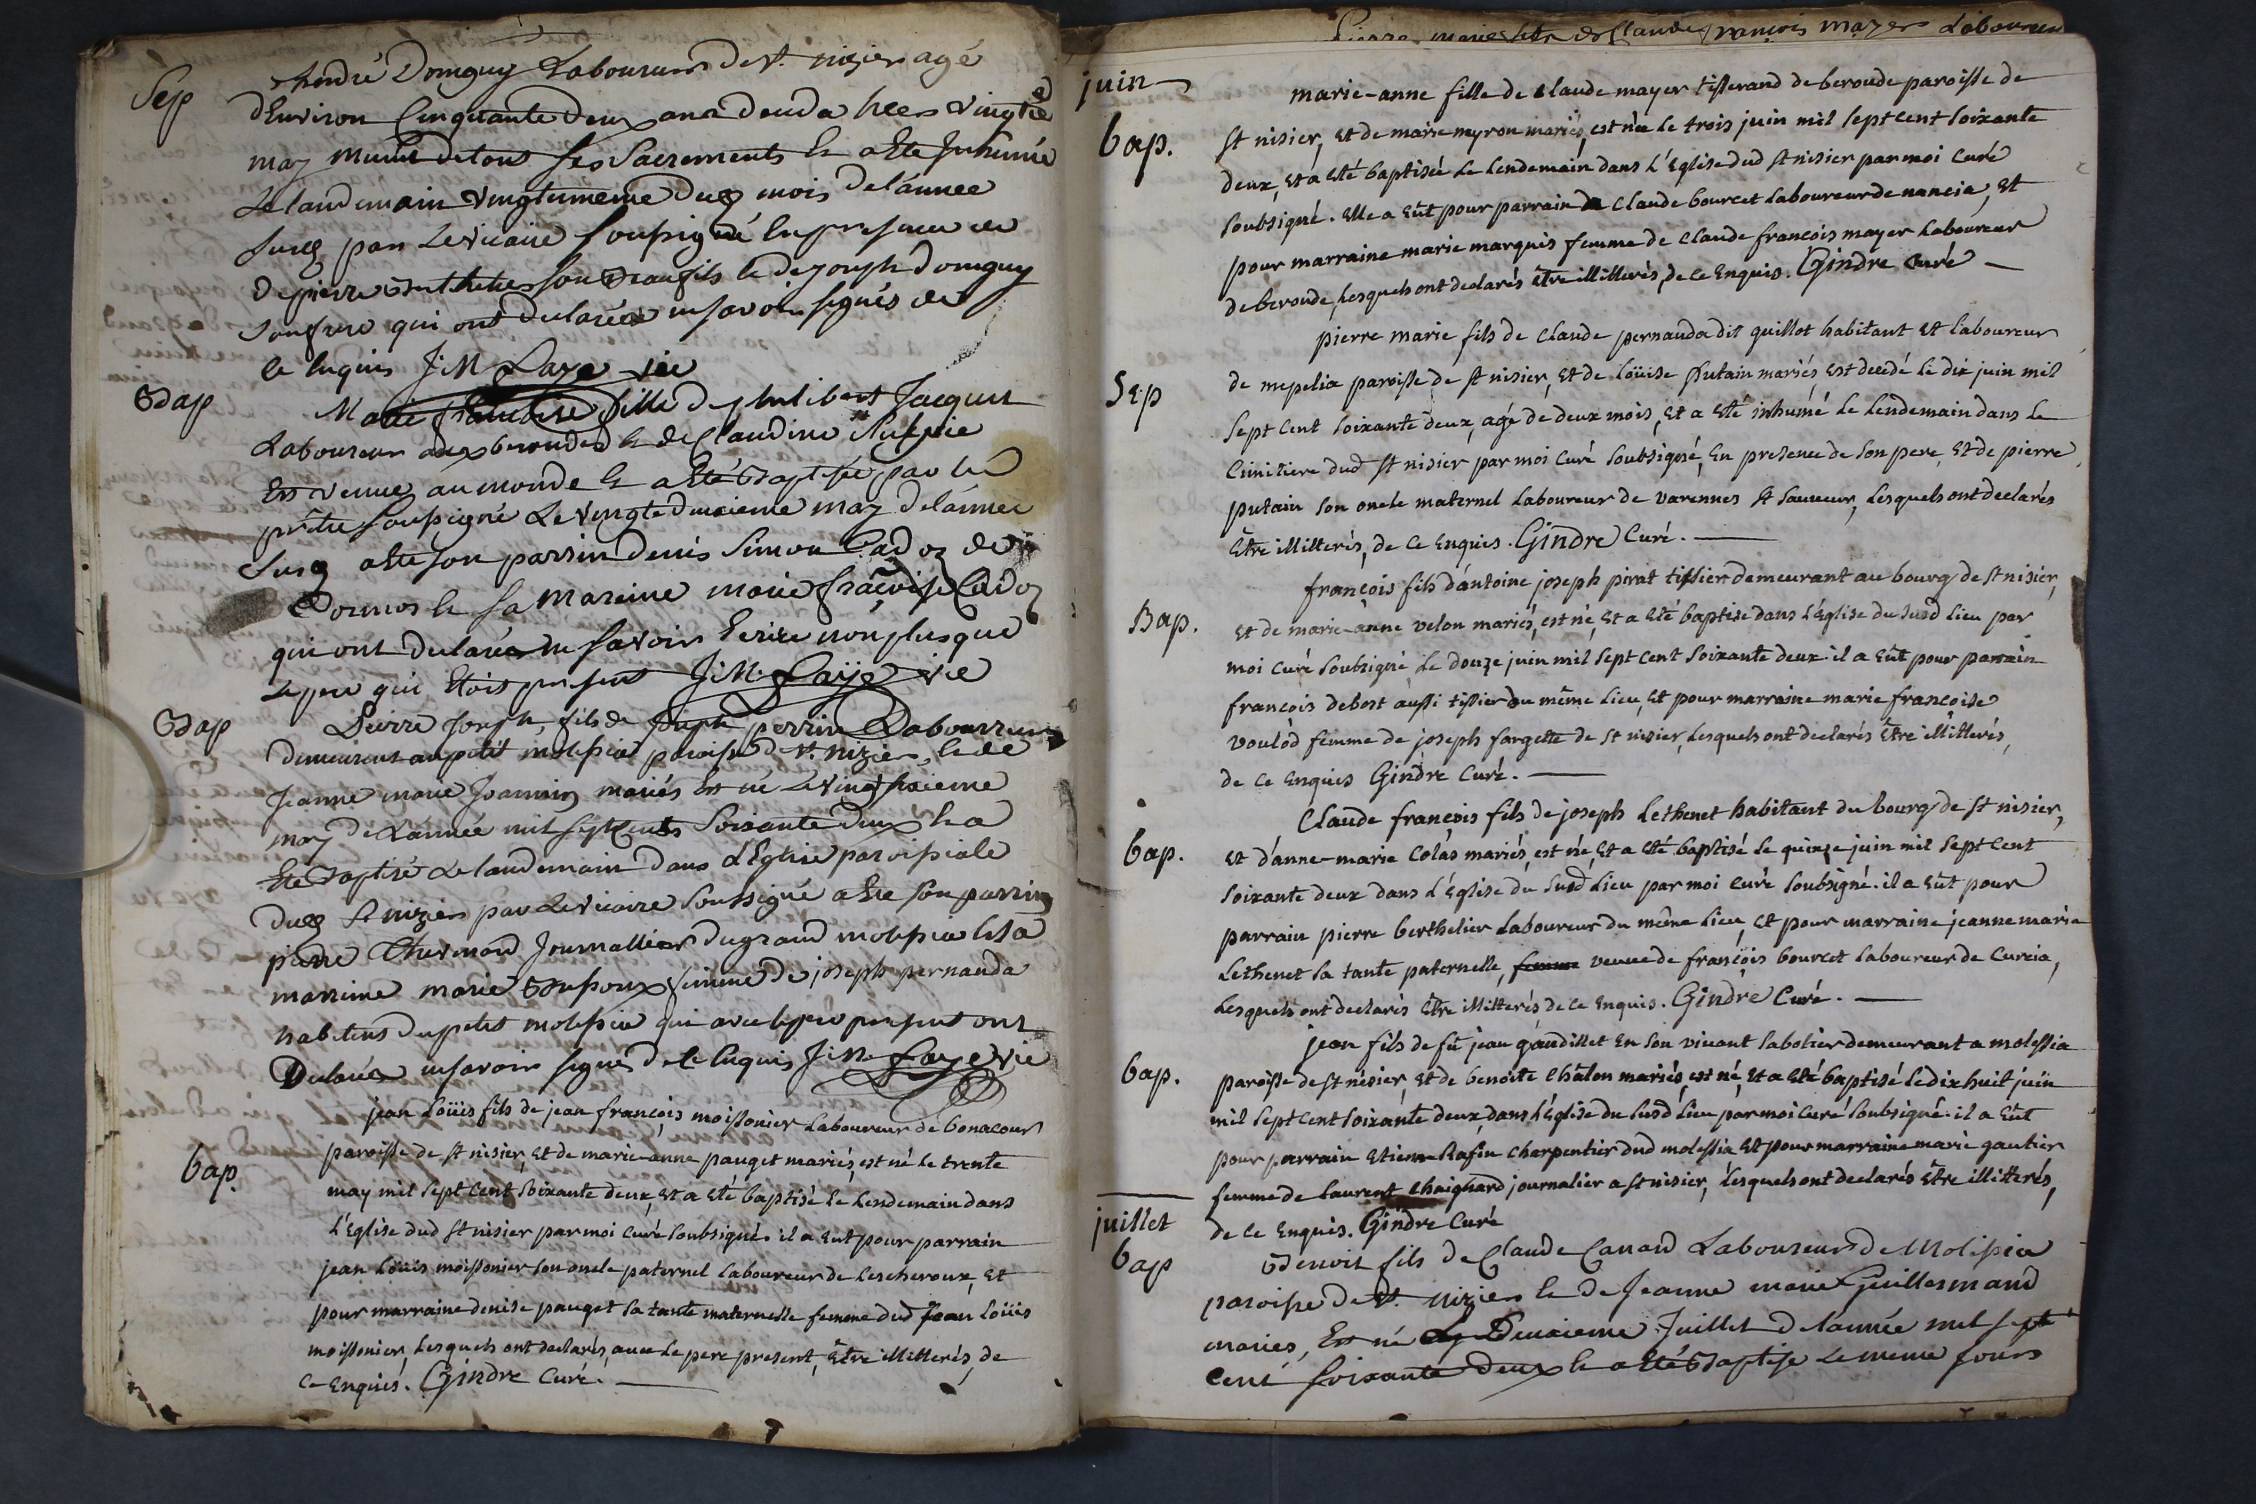 Sep
André Donguy Laboureur de st. nizier agé
d'Environ Cinquante deux ans deceda hier vingtie
may munit de tous ses Sacrements & a ete Inhumé
Le landemain vingtunieme dug mois de l'annee
susg par Levicaire soussigné En presence de
de pierre Berthelier son Beaufils & de joseph donguy
son frere qui ont declarés ne savoir signés de
ce Enquis J: M Laye vic
Bap
Marie françoise fille de philibert Jacquet
Laboureur aux beroudes & de Claudine
Est venue au monde & a Eté Baptisée par le
prêtre soussigné Le vingtdeuxieme may de l'année
susg a ete son parrin denis Simon Cadoz de
Cormos & sa mareine marie frãçoise Cadoz
qui ont declarés ne savoir Ecrire non plus que
le pere qui Etoit present J: M: Laÿe vic
Bap
Pierre Joseph, fils de joseph perrin Labourreur
demeurent au petit molissiat paroisse de st. nizier, & de
Jeanne marie Joannin mariés Est né Le vingtsixieme
may de L'année mil sept Cents Soixante deux & a
Ete Baptisé Le landemain dans L'Eglise paroissiale
dug St nizier par Levicaire soussigné a Ete son parrin
pierre Chermand Journallier du grand molissia & sa
marrine marie femme de joseph pernauda
habitans du petit molissia qui avec le pere present ont
Declarés ne savoir signé de ce Enquis J: M. Laye vic
bap.
jean Loüis fils de jean françois moissonier Laboureur de bonacour
paroisse de st nisier, et de marie-anne pauget mariés, est né le trente
may mil sept cent soixante deux, et a eté baptisé le lendemain dans
L'Eglise dud st nisier par moi curé soubsigné. il a eut pour parrain
jean Loüis moissonier son oncle paternel Laboureur de Lescheroux, et
pour marraine denise pauget sa tante maternelle femme dud jean Loüis
moissonier, Lesquels ont declarés, avec le pere present, être illitterés, de
ce enquis. Gindre curé.
Pierre marie fils de Claude françois mayer Laboureur
juin
bap.
marie-anne fille de claude mayer tisserand de beroude paroisse de
st nisier, et de marie myron mariés, est née le trois juin mil sept cent soixante
deux, et a eté baptisée le lendemain dans L'Eglise dud st nisier par moi curé
soubsigné. Elle a eût pour parrain claude bourcet Laboureur de nancia, et
pour marraine marie marquis femme de claude françois mayer Laboureur
de beroude, Lesquels ont declarés être illitterés, de ce enquis. Gindre curé
Sep
pierre marie fils de Claude pernauda dit guillot habitant et laboureur
de mepelia paroisse de st nisier, et de Loüise putain mariés, est decedé le dix juin mil
sept cent soixante deux, agé de deux mois, et a eté inhumé le lendemain dans le
cimitiere dud st nisier par moi curé soubsigné, en presence de son pere, et de pierre
putain son oncle maternel Laboureur de varennes st sauveur, Lesquels ont declarés
être illitterés, de ce enquis. Gindre curé.
Bap.
françois fils d'antoine joseph pirat tissier demeurant au bourg de st nisier,
et de marie-anne velon mariés, est né, et a eté baptise dans L'Eglise du susd Lieu par
moi curé soubsigné le douze juin mil sept cent soixante deux. il a eût pour parrain
françois debost aussi tissier du même Lieu, et pour marraine marie françoise
voulôd femme de joseph fargette de st nisier, Lesquels ont declarés être illitterés,
de ce enquis Gindre curé.
bap.
Claude françois fils de joseph Lethenet habitant du bourg de st nisier,
et d'anne-marie colas mariés, est né, et a eté baptisé le quinze juin mil sept cent
soixante deux dans L'Eglise du susd Lieu par moi curé soubsigné. il a eût pour
parrain pierre berthelier Laboureur du même lieu, et pour marraine jeanne marie
Lethenet sa tante paternelle, femme veuve de françois bourcet laboureur de curcia,
Lesquels ont declarés être illitterés de ce enquis. Gindre Curé.
bap.
jean fils de fû jean gaudillet en son vivant sabotier demeurant a molessia
paroisse de st nisier, et de benoîte chãlon mariés, est né, et a eté baptisé le dix huit juin
mil sept cent soixante deux, dans L'Eglise du susd Lieu par moi curé soubsigné. il a eût
pour parrain etienne Rafin charpentier dud molessia et pour marraine marie gautier
femme de Laurent chaignard journalier a st nisier, Lesquels ont declarés être illitterés,
de ce enquis. Gindre Curé
juillet
bap
Benoit fils de Claude Canard Laboureur de Molissia
paroisse de st. nizier & de Jeanne marie Guillermand
mariés, Est né Le Deuxieme Juillet de l'année mil sept
Cent soixante deux & a Eté Baptisé Le meme Jours